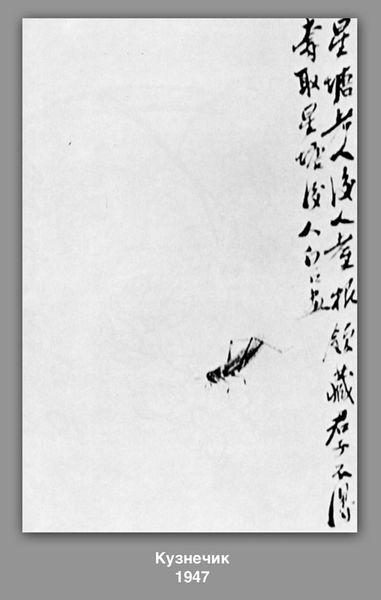 星塘老人後人根領藏君子不得
取星塘後人白
Кузнечик
1947